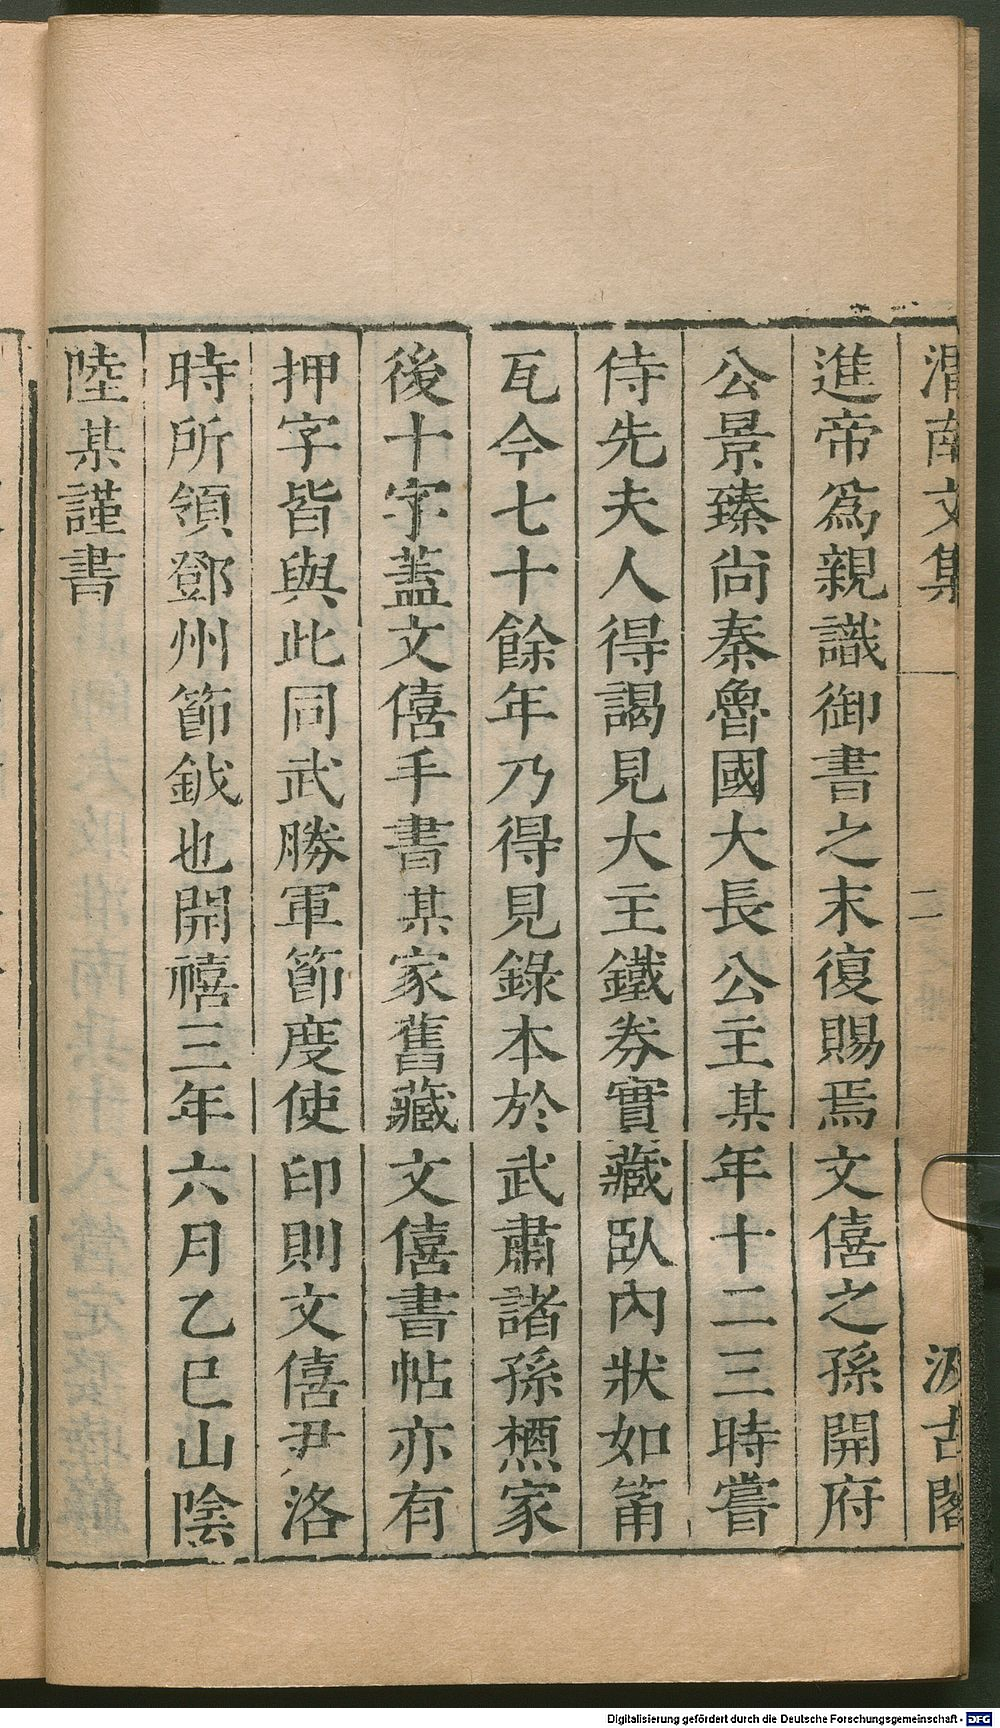 渭南文集 二 汲古閣
進帝爲親識御書之末復賜焉文僖之孫開府
公景臻尚秦魯國大長公主某年十二三時嘗
侍先夫人得謁見大主鐵券實藏臥內狀如筩
瓦今七十餘年乃得見錄本於武肅諸孫櫄家
後十字蓋文僖手書某家舊藏文僖書帖亦有
押字皆與此同武勝軍節度使印則文僖尹洛
時所領鄧州節鉞也開禧三年六月乙巳山陰
陸某謹書
Digitalisierung gefördert durch die Deutsche Forschungsgemeinschaft - DFG